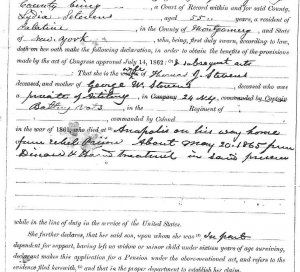 County Court, a Court of Record within and for said County,
Lydia Stevens aged 55 years, a resident of
Palatine in the County of Montgomery and State
of New York, who, being, first duly sworn, according to law,
doth on her oath make the following declaration, in order to obtain the benefits of the provisions
made by the act of Congress approved July 14, 1862: & subsequent acts
That she is the wife of Thomas J. Stevens
deceased, and mother of George W. Stevens deceased who was
a private of Artillery in Company 24 NY. commanded by Captain
in the Regiment of
commanded by Colonel
in the war of 1861, who died at Anapolis on his way home
from rebel Prison About May 20. 1865 from
Disease in said prison
while in the line of duty in the service of the United States.
She further declares, that her said son, upon whom she was in part
dependent for support, having left no widow or minor child under sixteen years of age surviving,
declarant makes this application for a Pension under the above-mentioned act, and refers to the
evidence filed herewith, and that in the proper department to establish her claim.